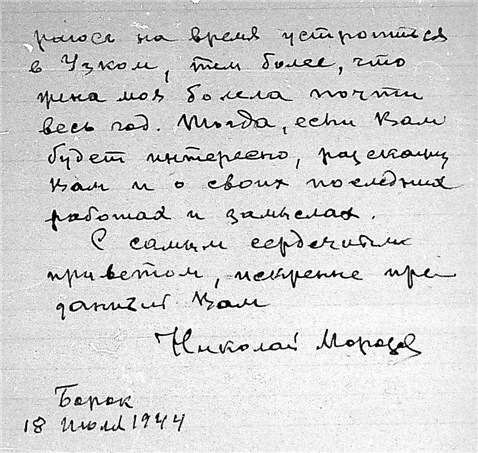 раюсь на время устроиться
в Узком, тем более, что
жена моя болела почти
весь год. Тогда, если Вам
будет интересно, расскажу
Вам и о своих последних
работах и замыслах.
С самым сердечным
приветом, искренне пре-
данный Вам
Николай Морозов
Борок
18 июля 1944